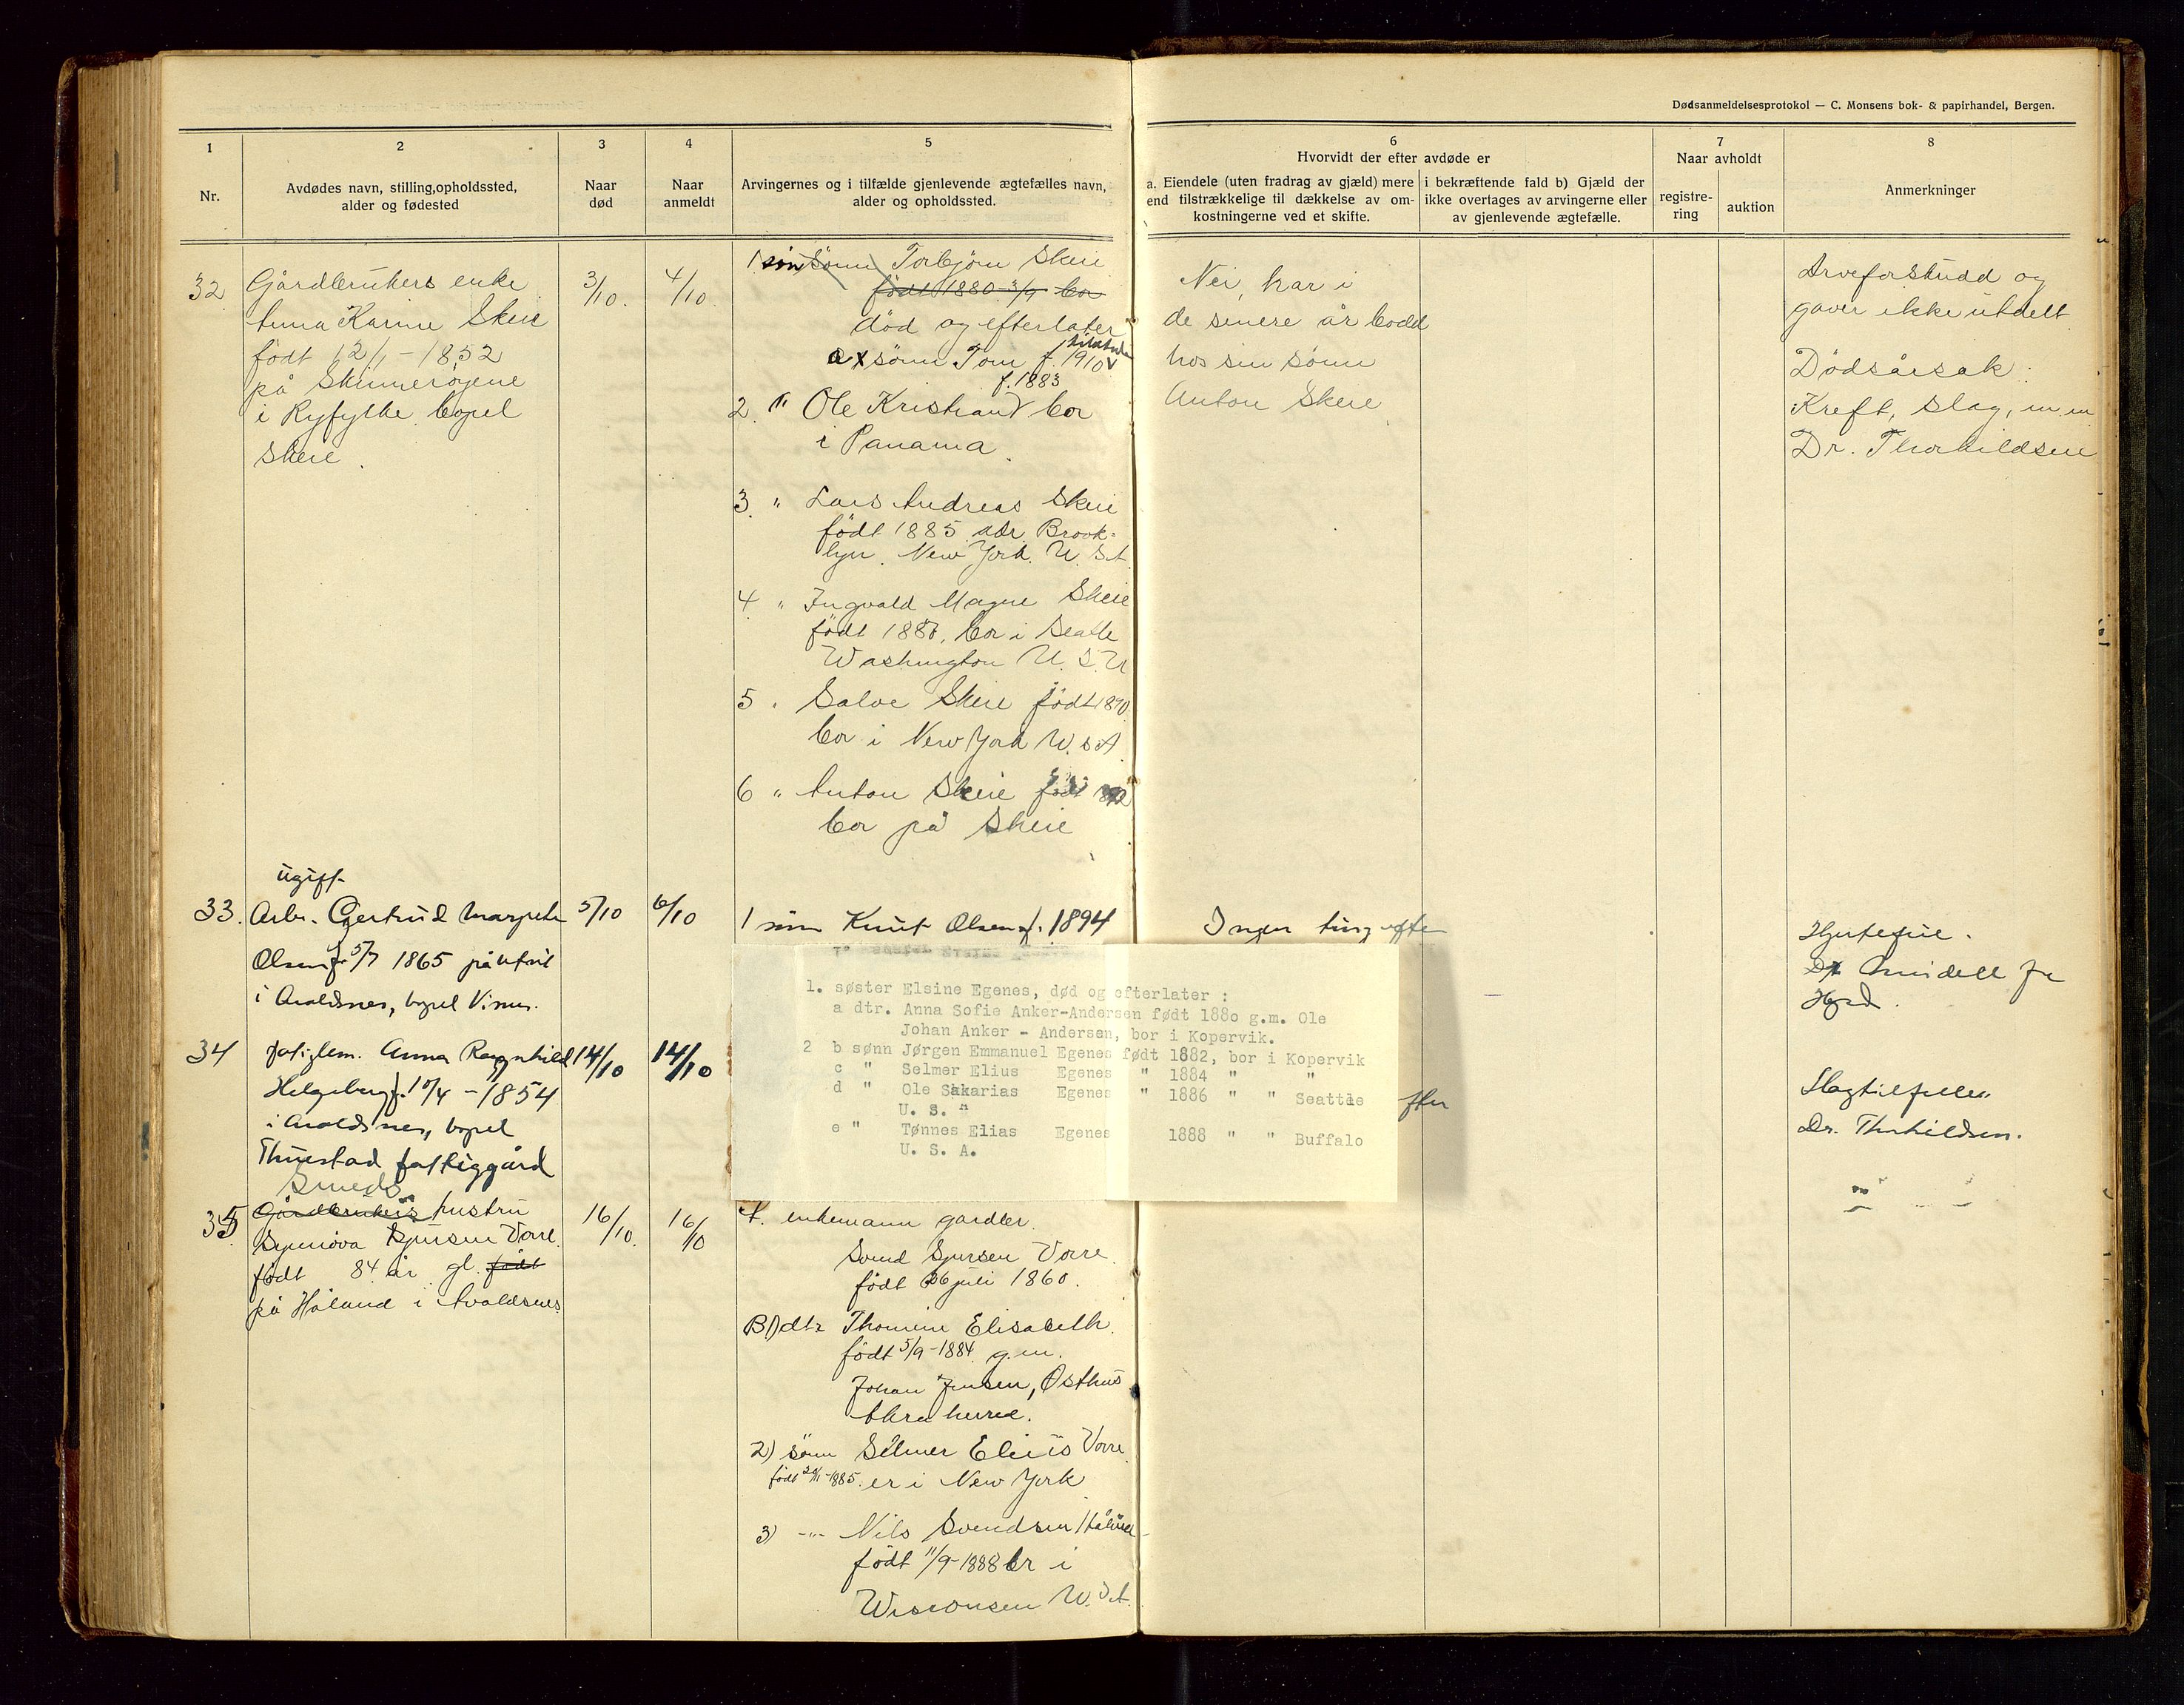 Dødsanmeldelsesprotokol — C. Monsens bok- & papirhandel, Bergen.
1
Nr.
2
Avdødes navn, stilling, opholdssted,
alder og fødested
3
Naar
død
4
Naar
anmeldt
5
Arvingernes og i tilfælde gjenlevende ægtefælles navn,
alder og opholdssted.
6
Hvorvidt der efter avdøde er
a. Eiendele (uten fradrag av gjæld) mere
end tilstrækkelige til dækkelse av om-
kostningerne ved et skifte.
i bekræftende fald b) Gjæld der
ikke overtages av arvingerne eller
av gjenlevende ægtefælle.
7
Naar avholdt
registre-
ring
auktion
8
Anmerkninger
32
Gårdbrukers enke
Anna Karine Skeie
født 12/1 - 1852
på
i Ryfylke bopel
Skeie.
3/10.
4/10
1 sønn Torbjørn Skeie
født 1880 3/9 bor
død og efterlater
a sønn Tom f. 1910
f. 1883
2 " Ole Kristian bor
i Panama.
3. " Lars Andreas Skeie
født 1885 adr. Brook-
lyn. New York. U.S.A
4 " Ingvald Magne Skeie
født 1888, bor i Seatle
Washington U.S.A
5 " Salve Skeie født 1890
bor i New York U.S.A
6 " Anton Skeie født
bor på Skeie
Nei, har i
de senere år bodd
hos sin sønn
Anton Skeie
Arveforskudd og
gaver ikke utdelt
Dødsårsak:
Kreft, slag, m.m
Dr. Thorkildsen
ugift
33. Arb. Gertrud Margrete
Olsen f. 5/7 1865 på Utvik
i Avaldsnes, bopel Visnes.
5/10
6/10
1 sønn Knut Olsen f. 1894
Ingen ting efter
Hjertefeil.
Dr
34
Fattiglem. Anna Ragnhild
Helgeberg f. 10/4 - 1854
i Avaldsnes, bopel
Thuestad fattiggård
14/10
14/10
1. søster Elsine Egenes, død og efterlater :
a dtr. Anna Sofie Anker-Andersen født 1880 g.m. Ole
Johan Anker - Andersen, bor i Kopervik.
2 b sønn Jørgen Emmanuel Egenes født 1882, bor i Kopervik
c " Selmer Elius Egenes " 1884 " "
d " Ole Sakarias Egenes " 1886 " " Seattle
U. S. A
e " Tønnes Elias Egenes 1888 " " Buffalo
U. S. A.
fter
Slagtilfelle
Dr. Thorkildsen.
Smeds
35 Gårdbrukers hustru
Synnøva Sjursen Vorre.
født 84 år gl. født
på Håland i Avaldsnes
16/10.
16/10
1. enkemann gardbr.
Svend Sjursen Vorre
født 26 juli 1860.
B 1) dtr Thomine Elisabeth.
født 5/9 - 1884 g.m.
Johan Jensen, Østhus
Åkra herred.
2) sønn Selmer Elius Vorre
født 1885. er i New York
3) -"- Nils Svendsen Håland
født 11/9 - 1888 er i
Wisconsen U.S.A.